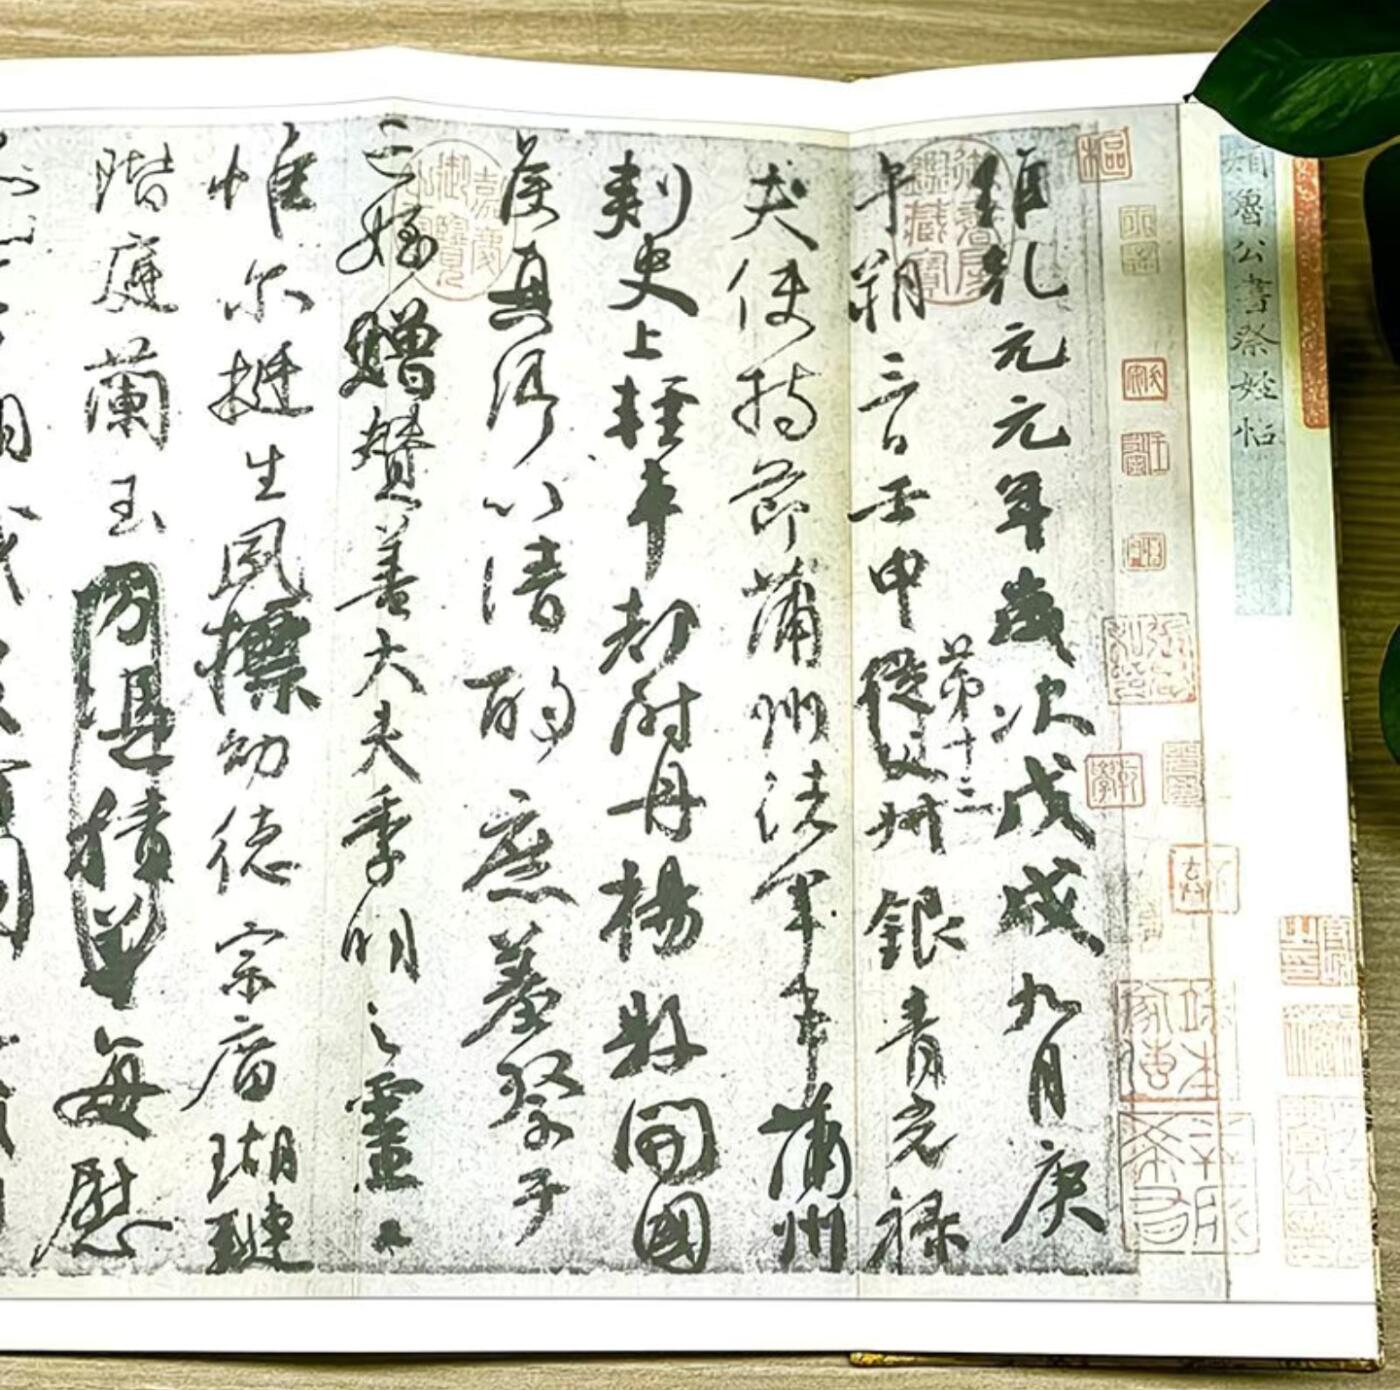 顏魯公書祭姪帖
維乾元元年歲次戊戌九月庚
午朔三日壬申第十三從父叔銀青光祿
夫使持節蒲州諸軍事蒲州
刺史上輕車都尉丹楊縣開國
侯真卿以清酌庶羞祭于
亡姪贈贊善大夫季明之靈
惟爾挺生夙標幼德宗廟瑚璉
階庭蘭玉方憑積善每慰